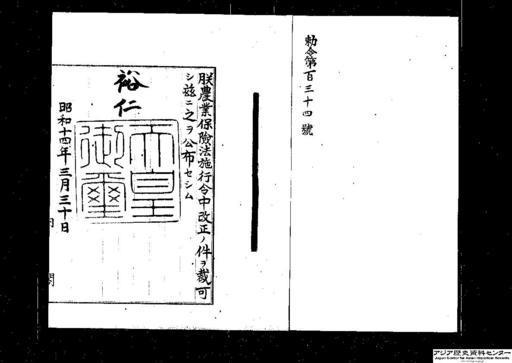 勅令第百三十四號
朕農業保險法施行令中改正ノ件ヲ裁可
シ茲ニ之ヲ公布セシム
裕仁
天皇
御璽
昭和十四年三月三十日
内閣
アジア歴史資料センター
Japan Center for Asian Historical Records